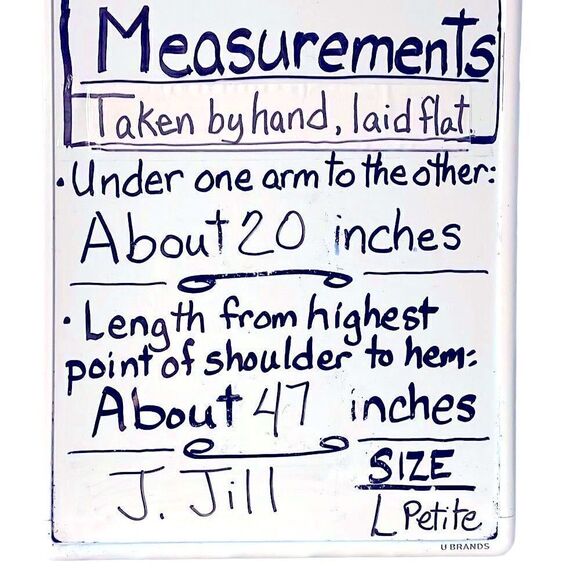 Measurements
Taken by hand, laid flat.
• Under one arm to the other:
About 20 inches
• Length from highest
point of shoulder to hem:
About 47 inches
J. Jill
SIZE
L Petite
U BRANDS